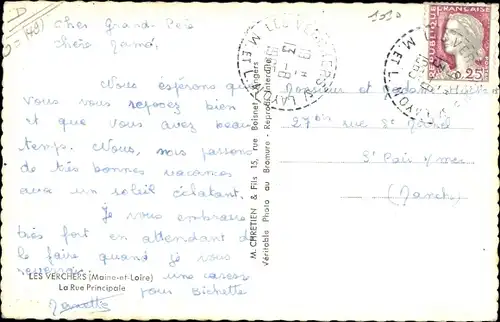 D = (49)
1510
Cher Grand-Père
chère Mamé,
Nous espérons que
vous vous reposez bien
et vous avez beau
temps. Nous, nous passons
de très bonnes vacances
avec un soleil éclatant.
Je vous embrasse
très fort en attendant de
le faire quand je vous
une caresse
pour Bichette
LES VERCHERS (Maine-et-Loire)
La Rue Principale
M. CHRETIEN & Fils 15, rue Boisnet, Angers
Véritable Photo au Bromure - Reproduction Interdite
LES VERCHERS S/ LAYON
M. ET L.
RÉPUBLIQUE FRANÇAISE
25
Monsieur et
27 bis rue St
St Pair s/mer
(Manche)